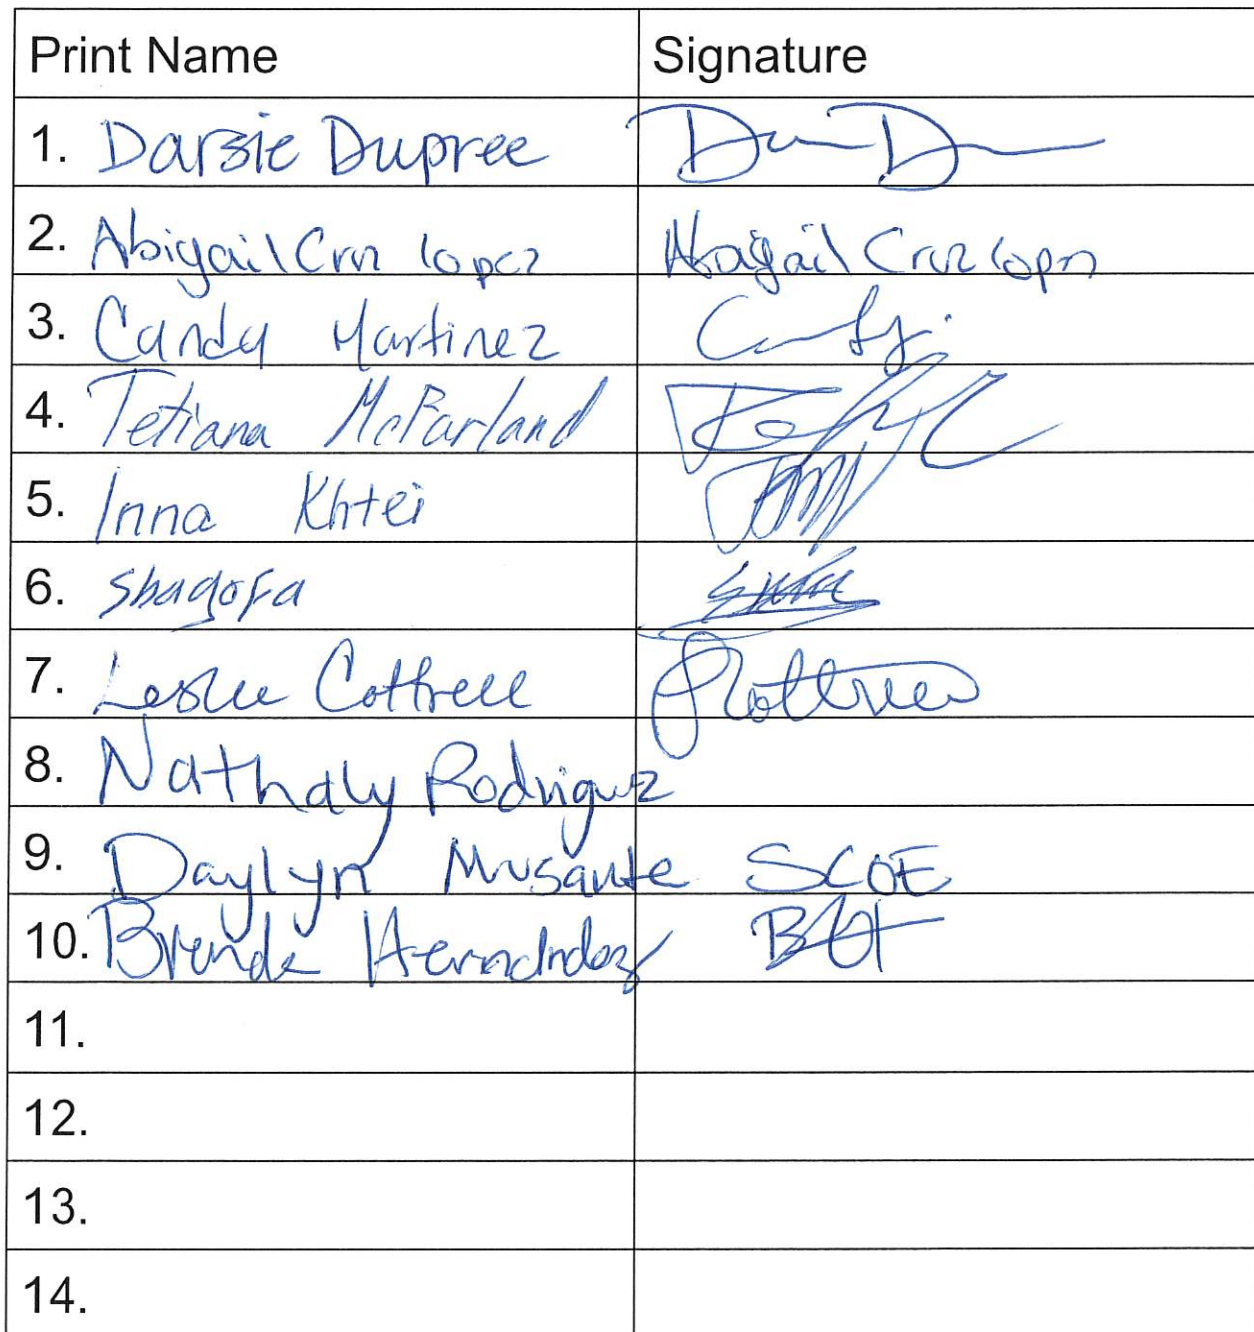 Print Name Signature
1. Darsie Dupree
2. Abigail Cruz lopez Abigail Cruz lopez
3. Candy Martinez
4. Tetiana McFarland
5. Inna Khtei
6. shagofa
7. Leslie Cottrell
8. Nathaly Rodriguez
9. Daylyn Musante SCOE
10. Brenda Hernandez
11.
12.
13.
14.